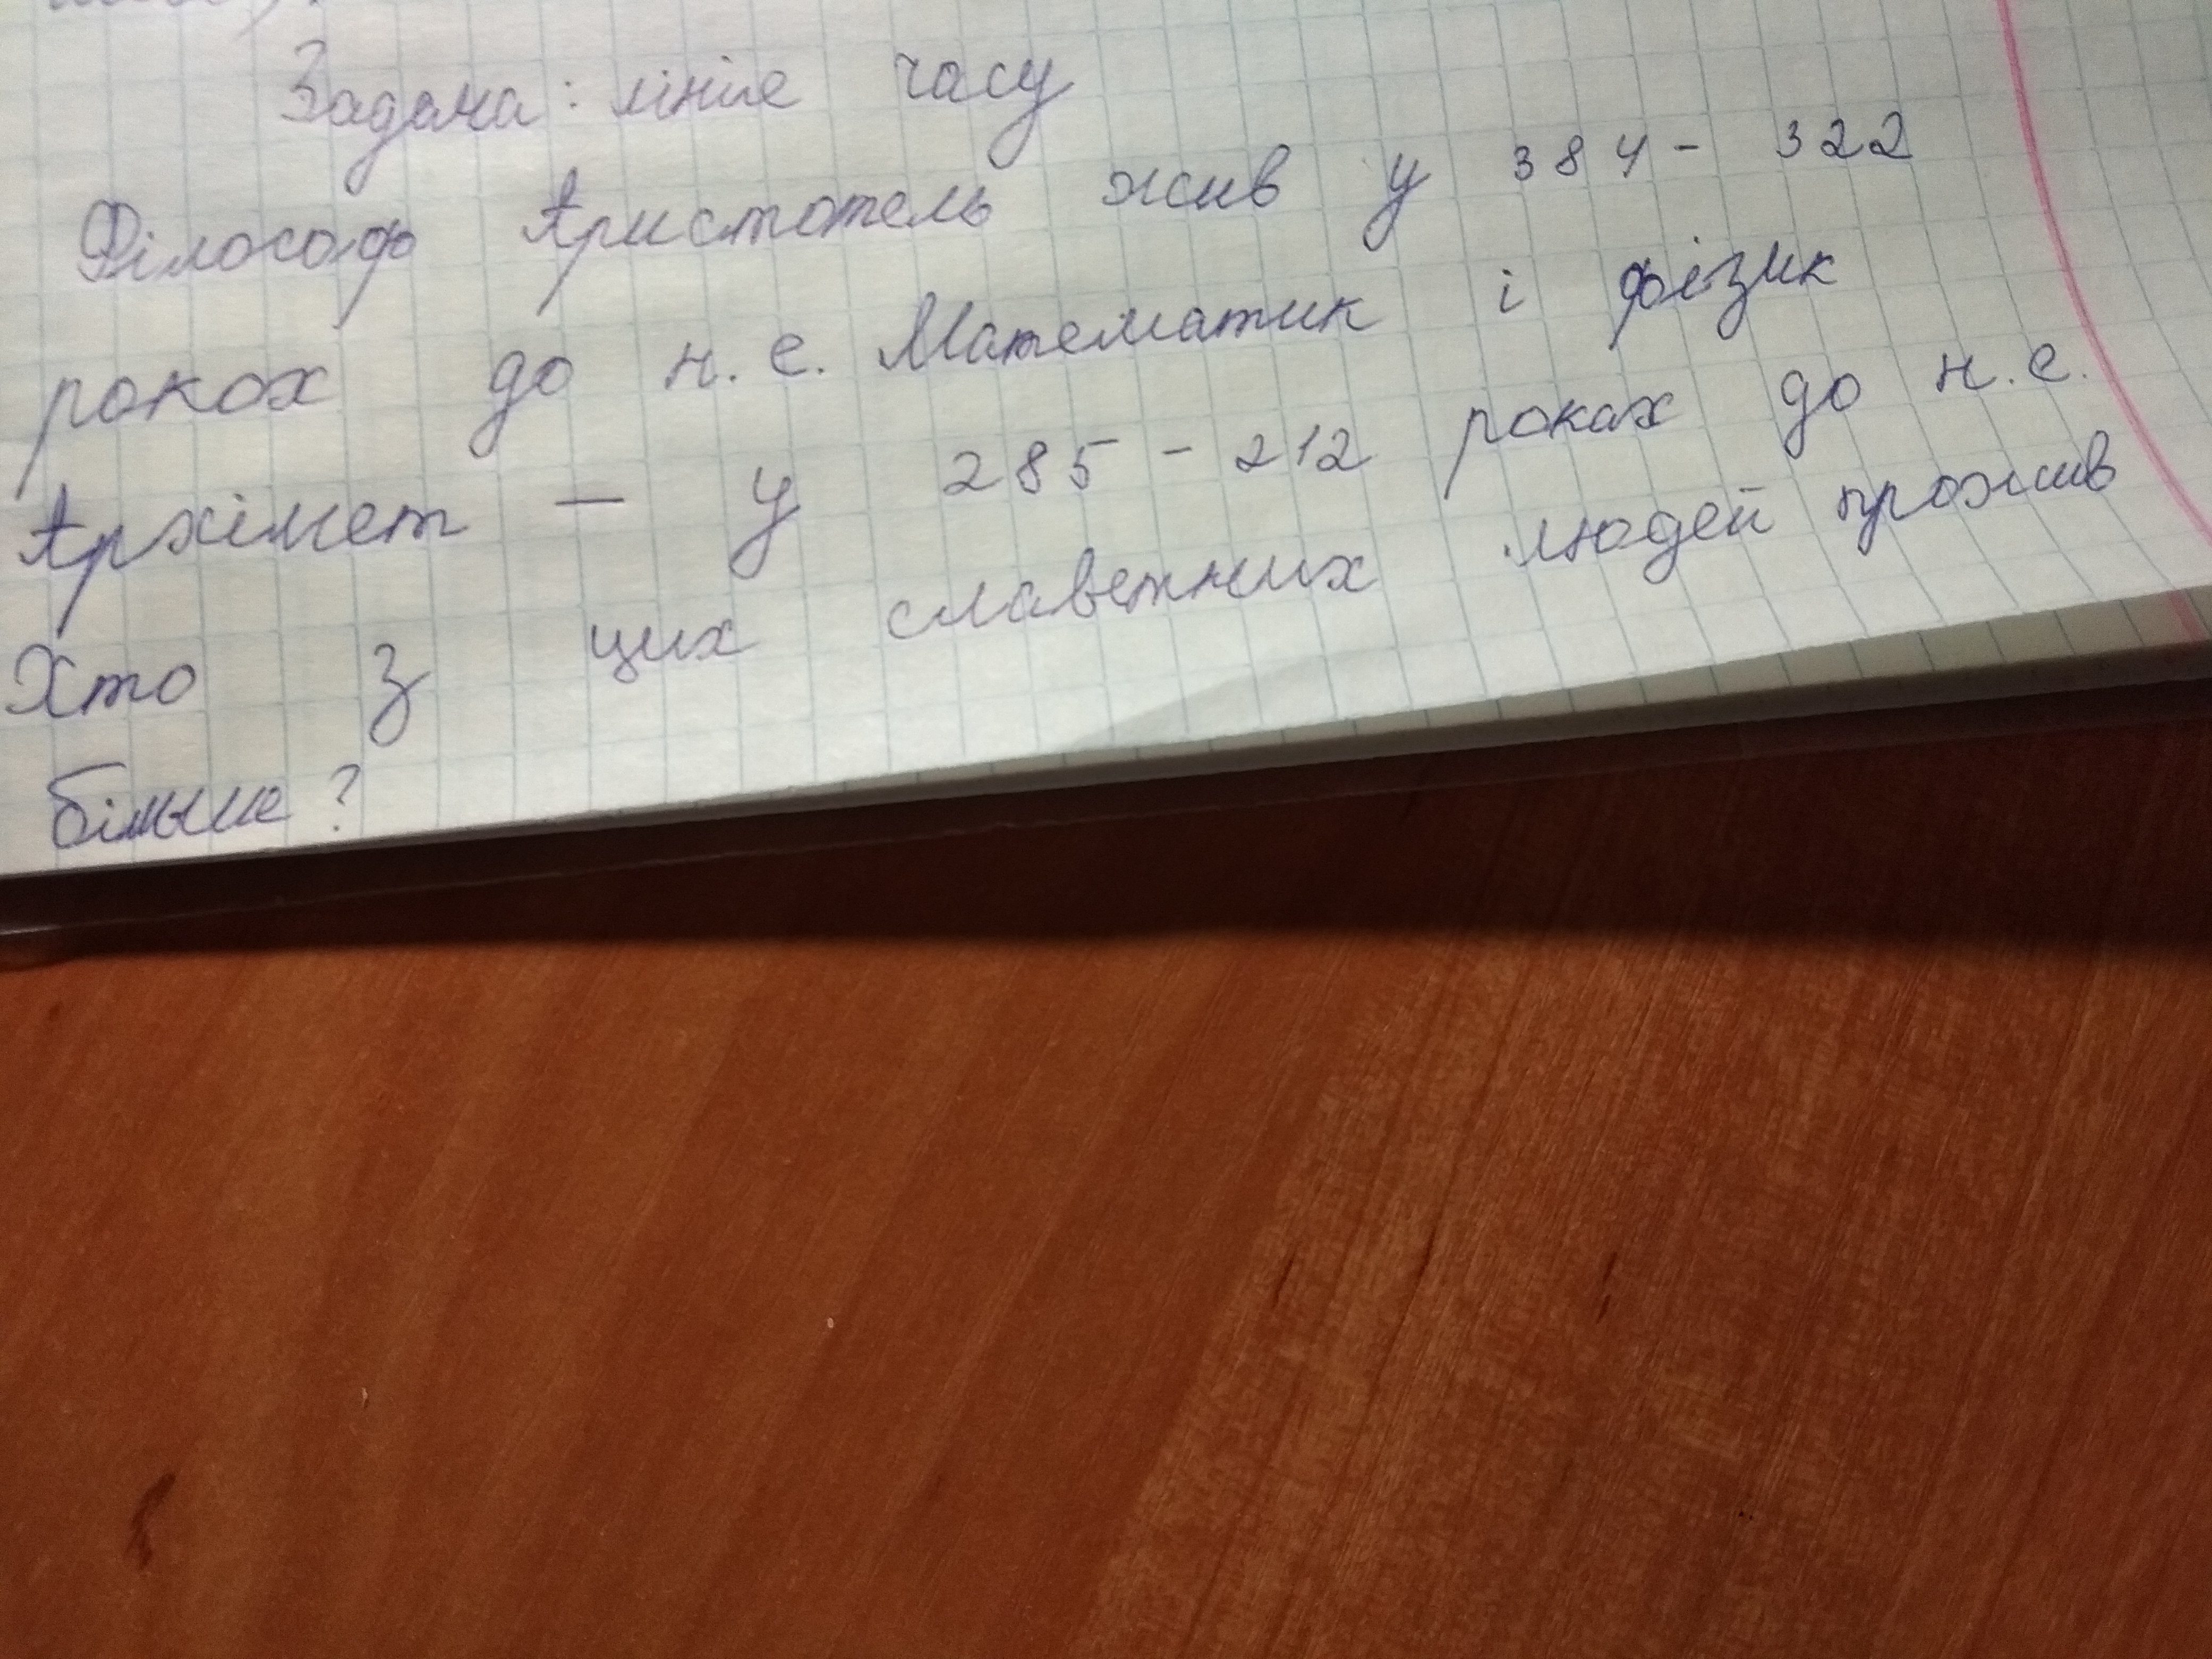 Задача: лініє часу
Філософ Аристотель жив у 384 - 322
роках до н. е. Математик і фізик
Архімет — у 285 - 212 роках до н. е.
Хто з цих славетних людей прожив
більше?